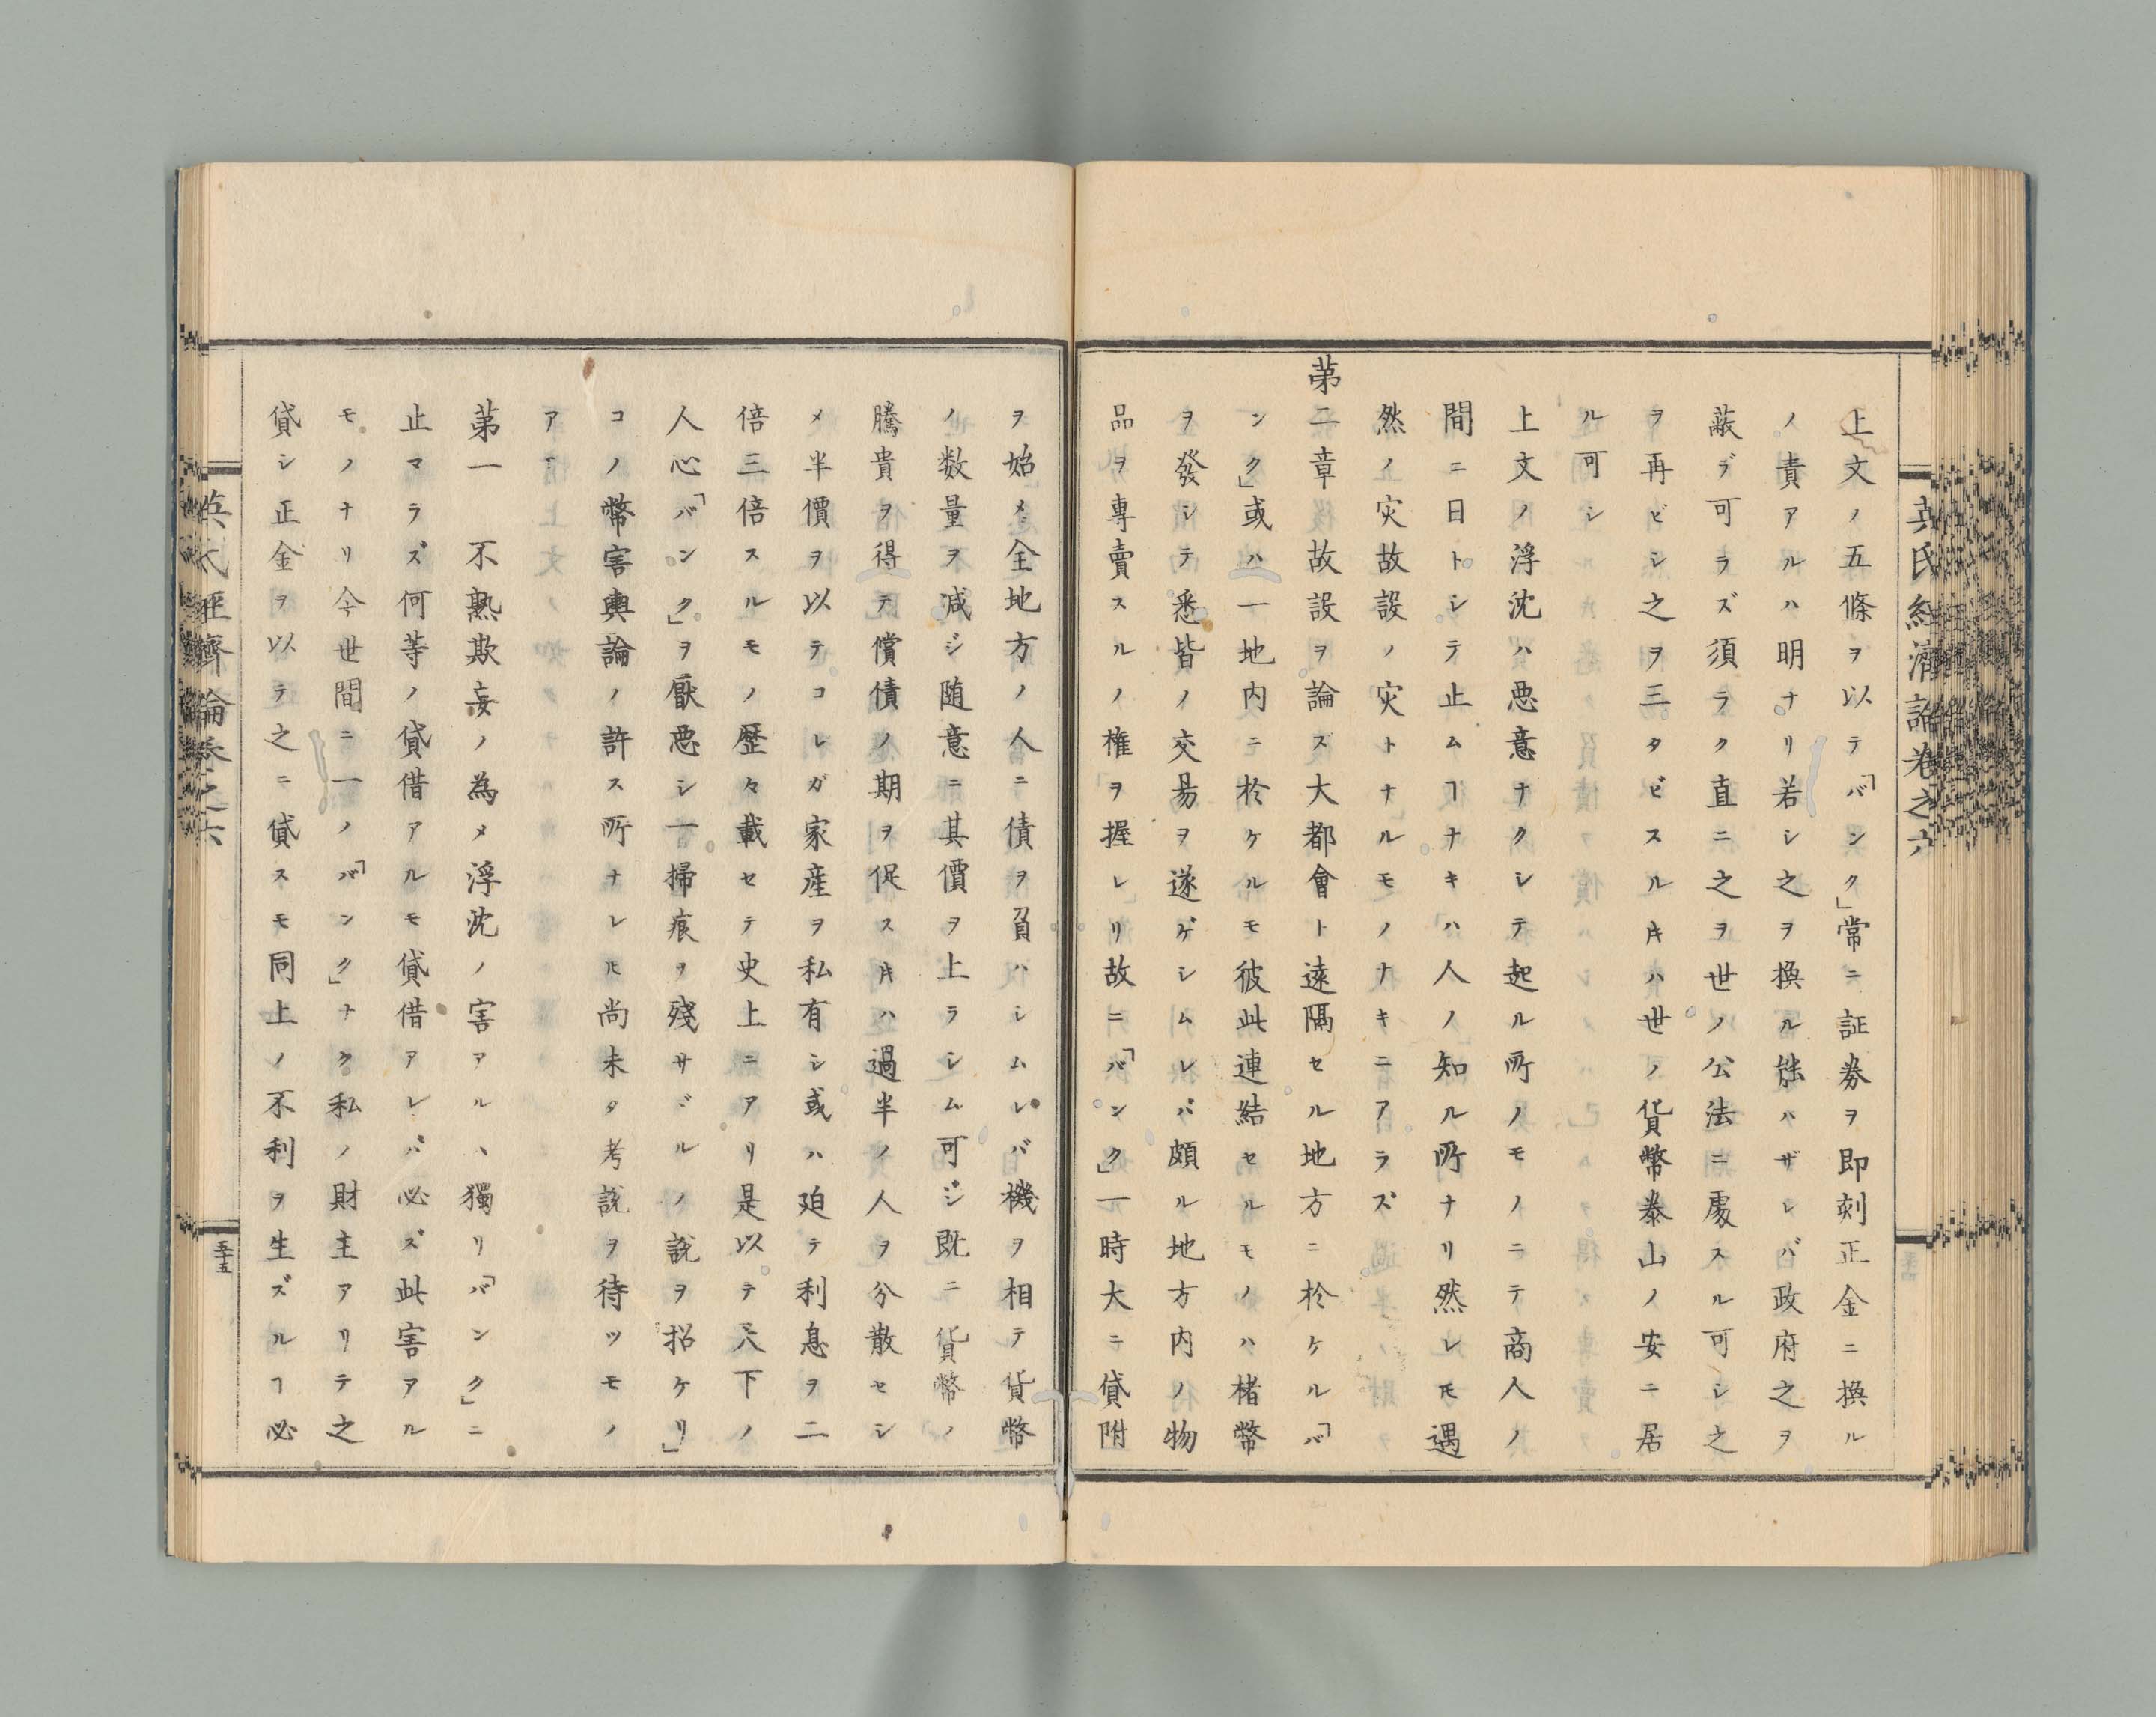 英氏経済論巻之六
上文ノ五條ヲ以テ「バンク」常ニ証劵ヲ即刻正金ニ換ル
ノ責アルハ明ナリ若シ之ヲ換ル能ハザレバ政府之ヲ
蔽デ可ラズ須ラク直ニ之ヲ世ノ公法ニ處スル可シ之
ヲ再ビシ之ヲ三タビスルキハ世ノ貨幣泰山ノ安ニ居
ル可シ
上文ノ浮沈ハ悪意ナクシテ起ル所ノモノニテ商人ノ
間ニ日トシテ止ムヿナキハ人ノ知ル所ナリ然レ𪜈遇
然ノ灾故設ノ灾トナルモノナキニアラズ
第二章故設ヲ論ス大都會ト遠隔セル地方ニ於ケル「バ
ンク」或ハ一地内ニ於ケルモ彼此連結セルモノハ楮幣
ヲ發シテ悉皆ノ交易ヲ遂ゲシムレバ頗ル地方内ノ物
品ヲ専賣スルノ権ヲ握レリ故ニ「バンク」一時大ニ貸附
ヲ始メ全地方ノ人ニ債ヲ負ハシムレバ機ヲ相テ貨幣
ノ数量ヲ減ジ随意ニ其價ヲ上ラシム可シ既ニ貨幣ノ
騰貴ヲ得テ償債ノ期ヲ促スキハ過半ノ人ヲ分散セシ
メ半價ヲ以テコレガ家産ヲ私有シ或ハ廹テ利息ヲ二
倍三倍スルモノ歴々載セテ史上ニアリ是以テ天下ノ
人心「バンク」ヲ厭悪シ一掃痕ヲ殘サヾルノ説ヲ招ケリ」
コノ幣害輿論ノ許ス所ナレ𪜈尚未タ考説ヲ待ツモノ
アリ
第一　不熟欺妄ノ為メ浮沈ノ害アルハ獨リ「バンク」ニ
止マラズ何等ノ貸借アルモ貸借アレバ必ズ此害アル
モノナリ今世間ニ一ノ「バンク」ナク私ノ財主アリテ之
貸シ正金ヲ以テ之ニ貸スモ同上ノ不利ヲ生ズルヿ必
英氏経濟論巻之六
五十五